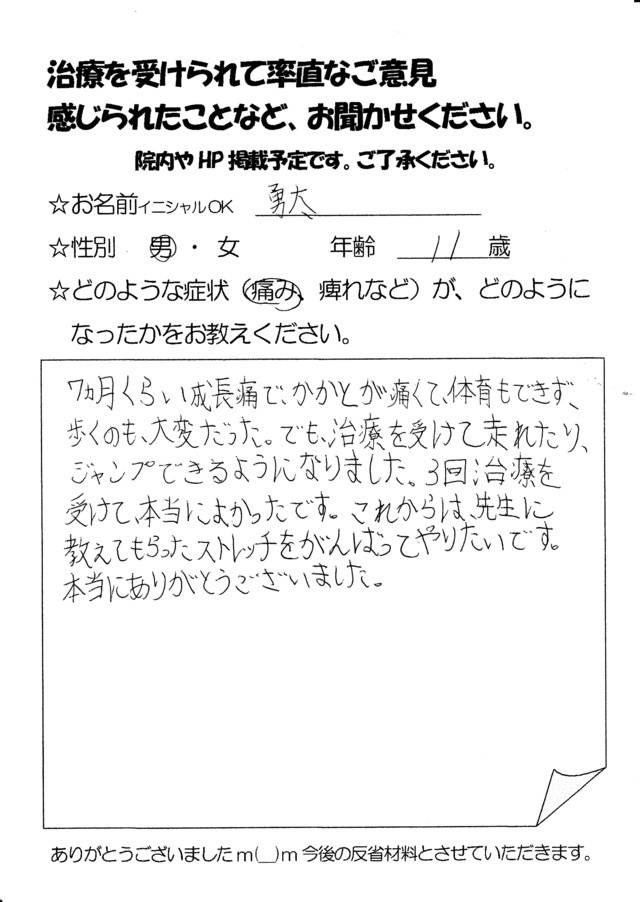 治療を受けられて率直なご意見
感じられたことなど、お聞かせください。
院内やHP掲載予定です。ご了承ください。
☆お名前イニシャルOK 勇大
☆性別 男・女 年齢 11歳
☆どのような症状（痛み、痺れなど）が、どのように
なったかをお教えください。
7ヵ月くらい成長痛で、かかとが痛くて、体育もできず、
歩くのも、大変だった。でも、治療を受けて走れたり、
ジャンプできるようになりました。3回治療を
受けて、本当によかったです。これからは、先生に
教えてもらったストレッチをがんばってやりたいです。
本当にありがとうございました。
ありがとうございましたm(__)m今後の反省材料とさせていただきます。